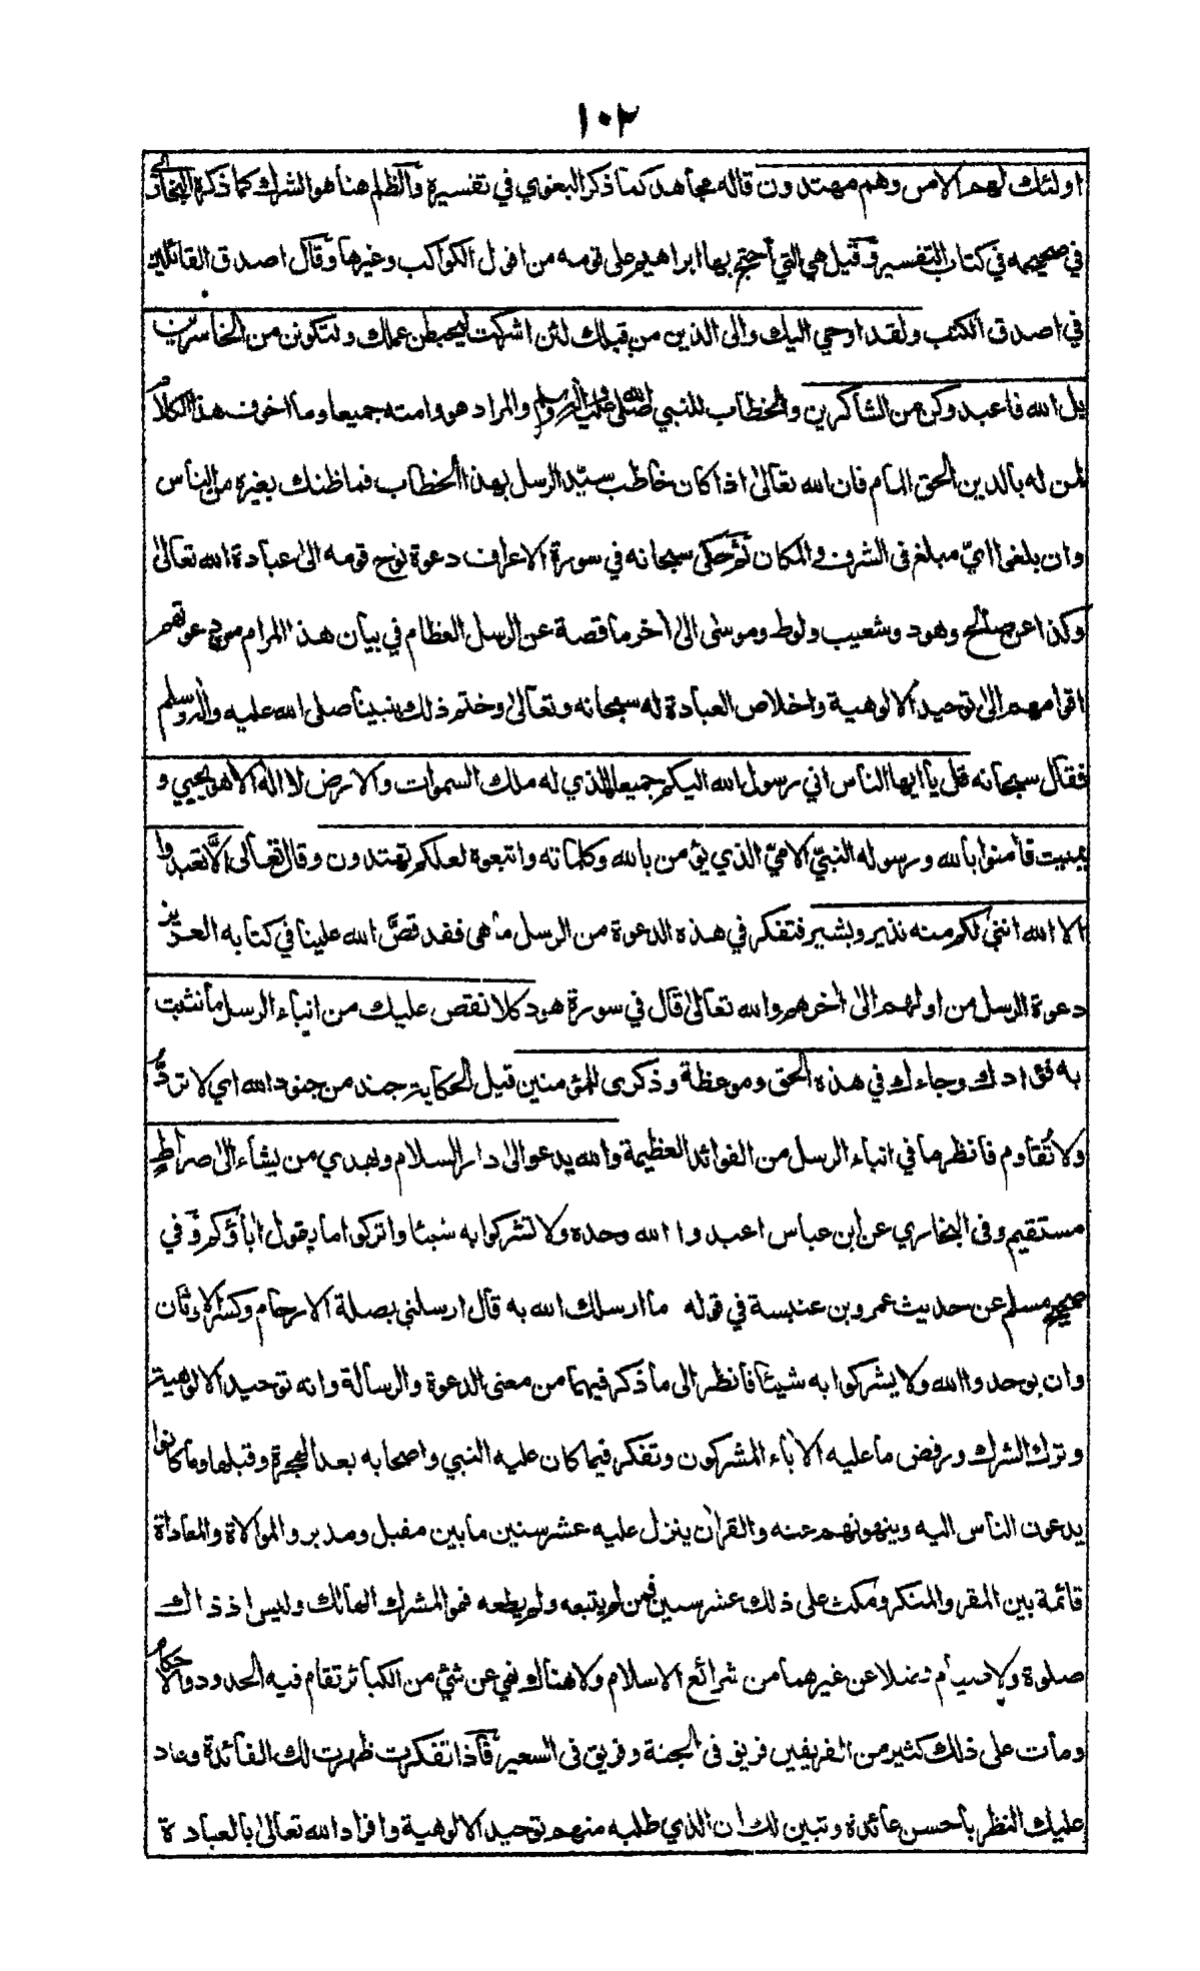 ١٠٢
اولئك لهم الامن وهم مهتدون قاله مجاهد كما ذكر البغوي في تفسيرة والظلم هنا هو الشرك كما ذكرة البخاري
في صحيحه في كتاب التفسير وقيل هي التي احتج بها ابراهيم على قومه من افول الكواكب وغيرها وقال اصدق القائلين
في اصدق الكتب ولقد اوحي اليك والى الذين من قبلك لئن اشركت ليحبطن عملك ولتكونن من الخاسرين
بل الله فاعبد وكن من الشاكرين والخطاب للنبي صلى الله عليه واله وسلم والمراد هو وامته جميعا وما اخوف هذا الكلام
لمن له بالدين الحق المام فان الله تعالى اذا كان خاطب سيّد الرسل بهذا الخطاب فما ظنك بغيره من الناس
وان بلغوا اىّ مبلغ فى الشرف والمكان ثم حكى سبحانه في سورة الاعراف دعوة نوح قومه الى عبادة الله تعالى
وكذا عن صالح وهود وشعيب ولوط وموسى الى اخر ما قصة عن الرسل العظام في بيان هذا المرام من دعوتهم
اقوامهم الى توحيد الالوهية واخلاص العبادة له سبحانه وتعالى وختم ذلك بنبينا صلى الله عليه واله وسلم
فقال سبحانه قل يا ايها الناس اني رسول الله اليكم جميعا الذي له ملك السموات والارض لا اله الا هو يحيي و
يميت فامنوا بالله ورسوله النبيّ الاميّ الذي يؤمن بالله وكلماته واتبعوه لعلكم تهتدون وقال تعالى الّا تعبدوا
الا الله انني لكم منه نذير وبشير فتفكر في هذه الدعوة من الرسل ما هى فقد قصَّ الله علينا في كتابه العزيز
دعوة الرسل من اولهم الى اخرهم والله تعالى قال في سورة هود كلا نقص عليك من انباء الرسل ما نثبت
به فؤادك وجاءك في هذه الحق وموعظة وذكرى للمؤمنين قيل الحكاية جند من جنود الله اي لا تردُّ
ولا تُقاوم فانظر ما في انباء الرسل من الفوائد العظيمة والله يدعو الى دار السلام ويهدي من يشاء الى صراط
مستقيم وفى البخاري عن ابن عباس اعبدوا الله وحده ولا تشركوا به شيئا واتركوا ما يقول اباؤكم وفي
صحيح مسلم عن حديث عمرو بن عنبسة في قوله ما ارسلك الله به قال ارسلني بصلة الارحام وكسر الاوثان
وان يوحدوا الله ولا يشركوا به شيئا فانظر الى ما ذكر فيهما من معنى الدعوة والرسالة وانه توحيد الالوهية
وترك الشرك ورفض ما عليه الاباء المشركون وتفكر فيما كان عليه النبي واصحابه بعد الهجرة وقبلها وما كانوا
يدعون الناس اليه وينهونهم عنه والقران ينزل عليه عشر سنين ما بين مقبل ومدبر والموالاة والمعاداة
قائمة بين المقر والمنكر ومكث على ذلك عشر سنين فمن لم يتبعه ولم يطعه فهو المشرك الهالك وليس اذ ذاك
صلوة ولا صيام فضلا عن غيرهما من شرائع الاسلام ولا هنالك نهي عن شئ من الكبائر تقام فيه الحدود والاحكام
ومات على ذلك كثير من الفريقين فريق فى الجنة وفريق فى السعير فاذا تفكرت ظهرت لك الفائدة وعاد
عليك النظر باحسن عائدة وتبين لك ان الذي طلبه منهم توحيد الالوهية وافراد الله تعالى بالعبادة